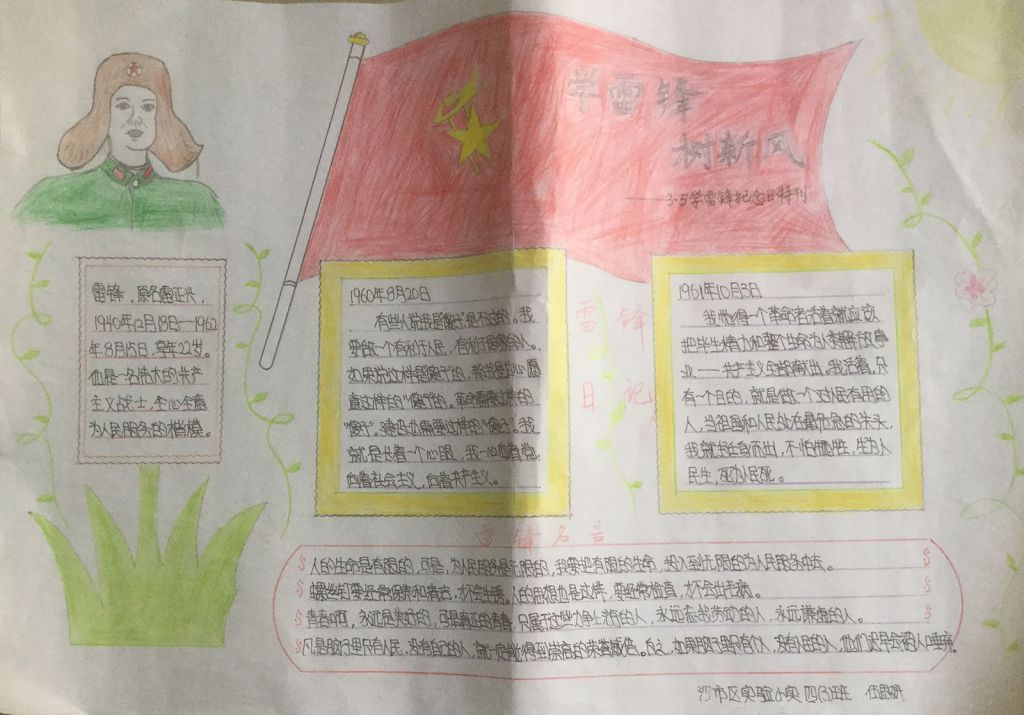 学雷锋
树新风
——3·5学雷锋纪念日特刊
雷锋，原名雷正兴，
1940年12月18日—1962
年8月15日，享年22岁。
他是一名伟大的共产
主义战士，全心全意
为人民服务的楷模。
雷锋
日记
1960年8月20日
有些人说我是傻子，是不对的。我
要做一个有利于人民，有利于国家的人。
如果说这样是傻子的，我是甘心愿
意这样的"傻子"的。革命需要这样的
"傻子"，建设也需要这样的"傻子"。我
就是长着一个心眼，我一心向着党，
向着社会主义，向着共产主义。
1961年10月3日
我觉得一个革命者活着就应该
把毕生精力和整个生命为人类解放事
业——共产主义全部献出，我活着，只
有一个目的，就是做一个对人民有用的
人，当祖国和人民处在最危急的关头，
我就挺身而出，不怕牺牲，生为人
民生，死为人民死。
雷锋名言
人的生命是有限的，可是，为人民服务是无限的，我要把有限的生命，投入到无限的为人民服务中去。
螺丝钉要经常保养和清洁，才不会生锈。人的思想也是这样，要经常检查，才不会出毛病。
青春啊，永远是美好的，可是真正的青春，只属于这些力争上游的人，永远忘我劳动的人，永远谦虚的人。
凡是脑子里只有人民，没有自己的人，就一定能得到崇高的荣誉威信。反之，如果脑子里只有个人，没有人民的人，他们迟早会被人唾弃。
沙市区实验小学 四(3)班